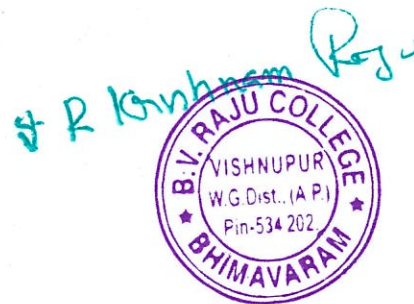 R Krishnam Raju
B.V. RAJU COLLEGE
VISHNUPUR
W.G.Dist., (A.P.)
Pin-534 202.
★ BHIMAVARAM ★